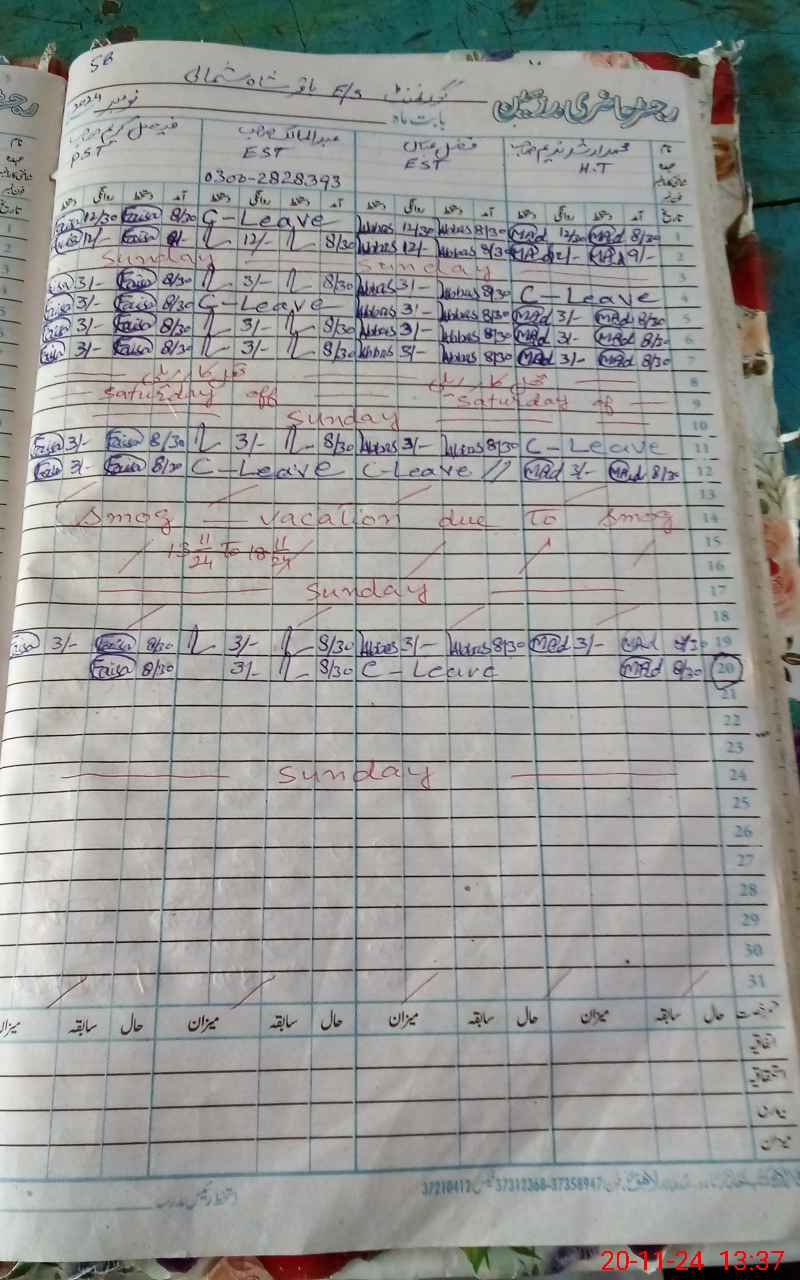 SB
رجسٹر حاضری مدرسین گورنمنٹ E/S باقر شاہ شمالی
بابت ماہ نومبر 2024
نام محمد ارشد ندیم صاحب فضل عباس عبدالمالک صاحب فیصل کریم صاحب
H.T EST EST PST
0300-2828393
تاریخ آمد دستخط روانگی دستخط آمد دستخط روانگی دستخط آمد دستخط روانگی دستخط آمد دستخط روانگی
12/30 Faisa 8/30 C-Leave Abbas 12/30 Abbas 8/30 MAd 12/30 MAd 8/30 1
12/- Faisa 12/- 8/30 Abbas 12/- Abbas 8/30 MAd MAd 9/- 2
Sunday Sunday 3
3/- Faisa 8/30 3/- 8/30 Abbas 3/- Abbas 8/30 C-Leave 4
3/- Faisa 8/30 C-Leave Abbas 3/- Abbas 8/30 MAd 3/- MAd 8/30 5
3/- Faisa 8/30 3/- 8/30 Abbas 3/- Abbas 8/30 MAd 3/- MAd 8/30 6
3/- Faisa 8/30 3/- 8/30 Abbas 3/- Abbas 8/30 MAd 3/- MAd 8/30 7
8
Saturday off Saturday of 9
Sunday 10
Faisa 3/- Faisa 8/30 3/- 8/30 Abbas 3/- Abbas 8/30 C-Leave 11
Faisa 3/- Faisa 8/30 C-Leave C-Leave // MAd 3/- MAd 8/30 12
13
Smog — vacation due To Smog 14
13 11/24 To 18 11/24 15
16
Sunday 17
18
Faisa 3/- Faisa 8/30 3/- 8/30 Abbas 3/- Abbas 8/30 MAd 3/- MAd 8/30 19
Faisa 8/30 3/- 8/30 C-Leave MAd 8/30 20
21
22
23
Sunday 24
25
26
27
28
29
30
31
حال سابقہ میزان حال سابقہ میزان حال سابقہ میزان حال سابقہ میزان
اتفاقیہ
استحقاقیہ
بیماری
میزان
37210412 37312368-37358947
20-11-24 13:37